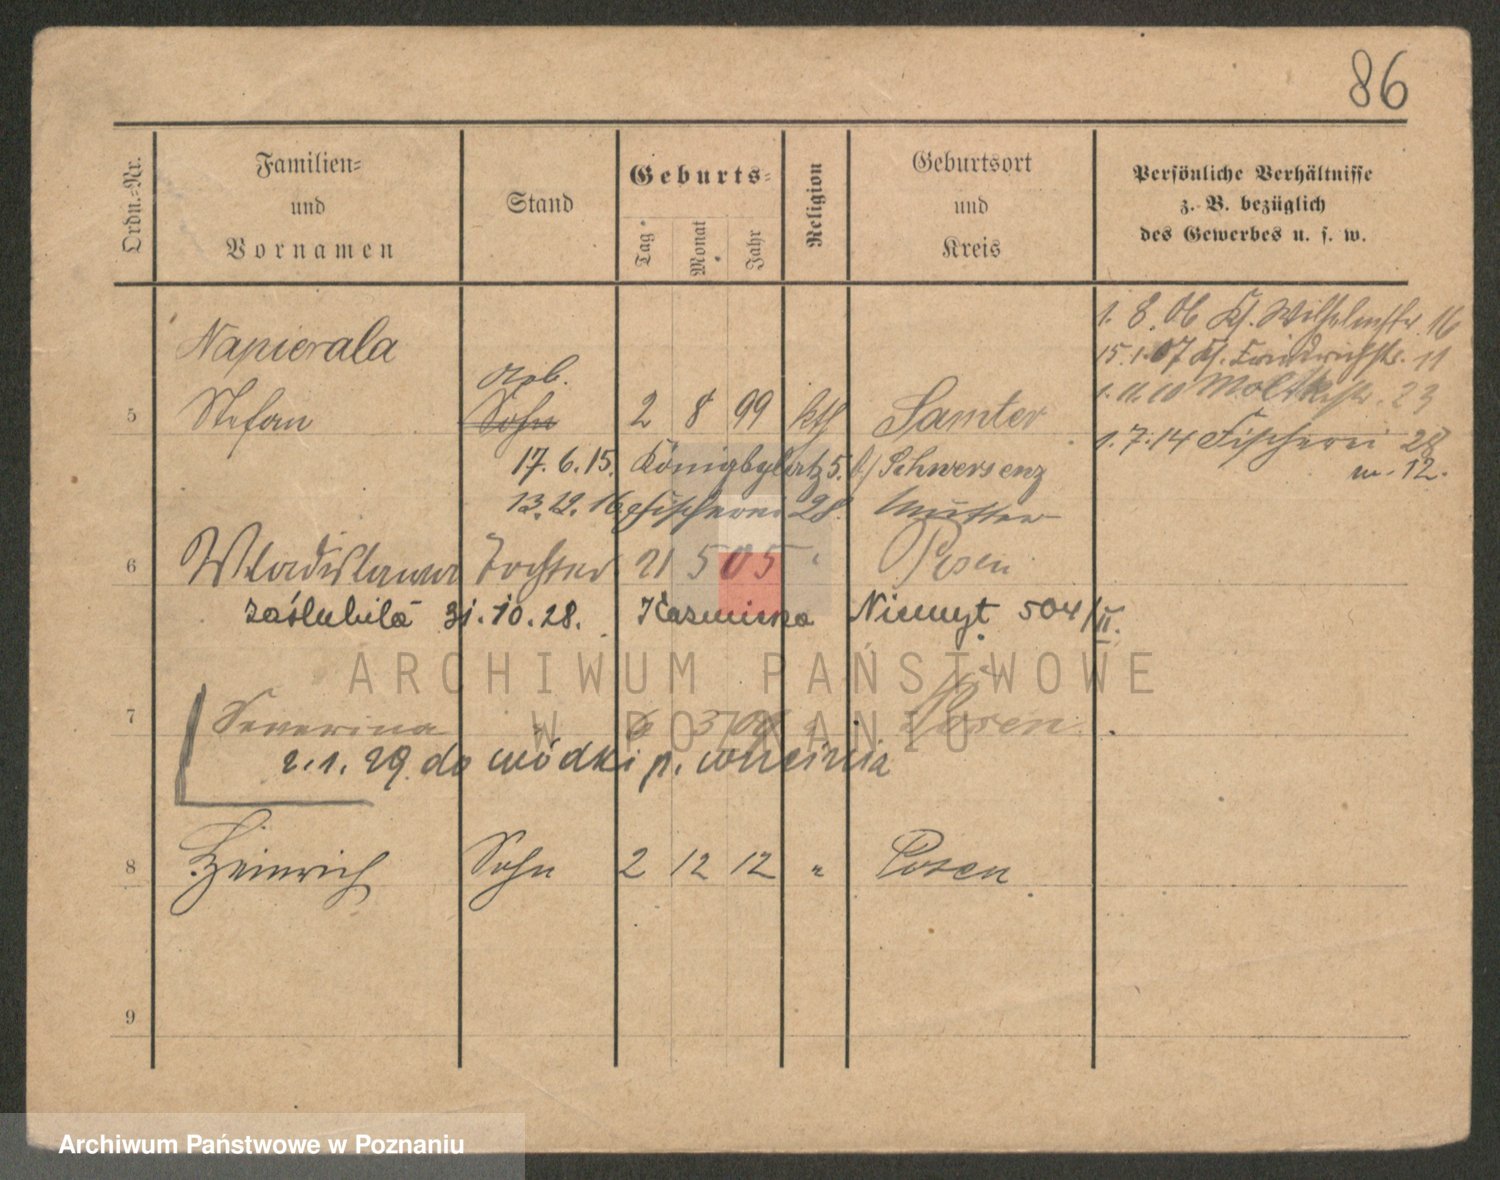 86
Ordn.-Nr.
Familien-
und
Vornamen
Stand
Geburts-
Tag
Monat
Jahr
Religion
Geburtsort
und
Kreis
Persönliche Verhältnisse
z. B. bezüglich
des Gewerbes u. s. w.
1. 8. 06 Kl. Wilhelmstr. 16
15. 1. 07 Kl. Friedrichstr. 11
1. 11. 10 Moltkestr. 23
1. 7. 14 Fischerei 28
w. 12.
Napierala
Arb.
5 Stefan Sohn 2 8 99 kth Samter
17. 6. 15. Königsplatz 5. Schwersenz
13. 12. 16 Fischerei 28. Mutter
6 Wladislawa Tochter 21 5 05 " Posen
zaślubiła 31. 10. 28. Kaźmierza Niemyt 504/II.
7 Severina " 6 3 09 " Posen
2. 1. 29. do Wódki p. Września
8 Heinrich Sohn 2 12 12 " Posen
9
ARCHIWUM PAŃSTWOWE
W POZNANIU
Archiwum Państwowe w Poznaniu